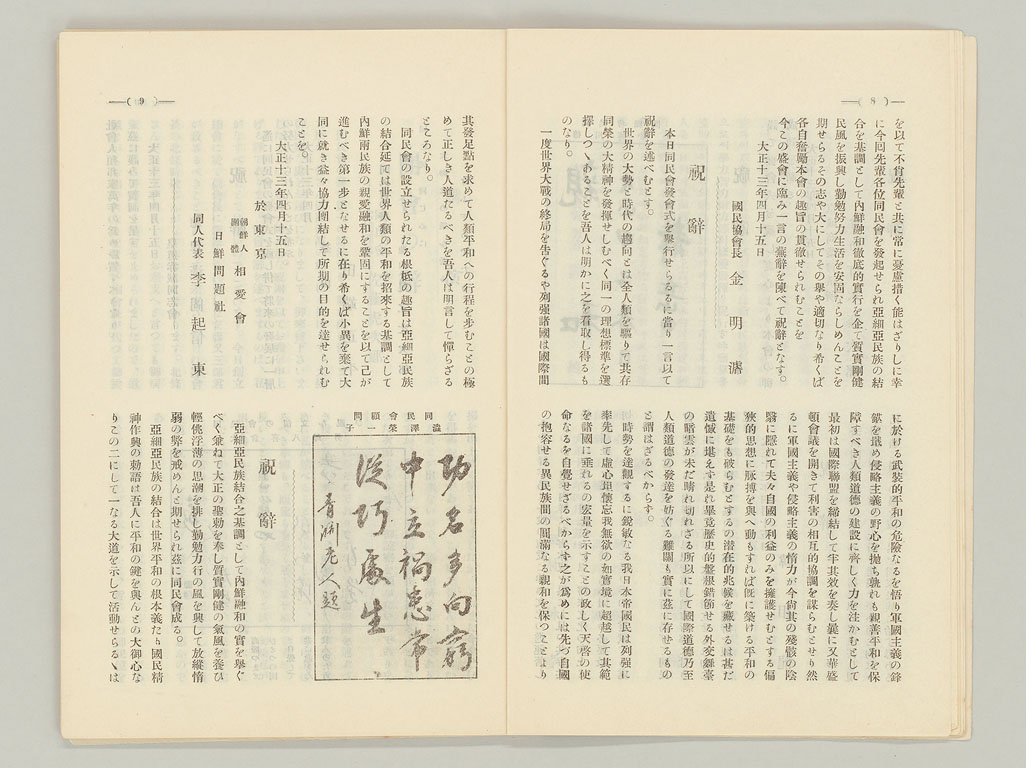 —( 8 )—
を以て不肖先輩と共に常に憂慮措く能はざりしに幸
に今回先輩各位同民會を發起せられ亞細亞民族の結
合を基調として內鮮融和徹底的實行を企て質實剛健
民風を振興し勤勉努力生活を安固ならしめんことを
期せらるその志や大にしてその擧や適切なり希くば
各自奮勵本會の趣旨の貫徹せられむことを
今この盛會に臨み一言の蕪辭を陳べて祝辭となす。
大正十三年四月十五日
國民協會長 金明濬
祝辭
本日同民會發會式を擧行せらるるに當り一言以て
祝辭を述べむとす。
世界の大勢と時代の趨向とは全人類を驅りて共存
同榮の大精神を發揮せしむべく同一の理想標準を選
擇しつゝあることを吾人は明かに之を看取し得るも
のなり。
一度世界大戰の終局を告ぐるや列强諸國は國際間
に於ける武装的平和の危險なるを悟り軍國主義の鋒
鋩を戢め侵略主義の野心を抛ち孰れも親善平和を保
障すべき人類道德の建設に齊しく力を注かむとして
最初は國際聯盟を締結して半其效を奏し義に又華盛
頓會議を開きて利害の相互的協調を謀らむとせり然
るに軍國主義や侵略主義の惰力が今尙其の殘骸の陰
翳に隱れて夫々自國の利益のみを擁護せむとする偏
狹的思想に脈搏を與へ動もすれば旣に築ける平和の
基礎をも破らむとするの潜在的兆候を藏せるは甚だ
遺憾に堪えず是れ畢竟歷史的盤根錯節せる外交舞臺
の暗雲が未だ晴れ切れざる所以にして國際道德乃至
人類道德の發達を妨ぐる難關も實に茲に存せるもの
と謂はざるべからず。
時勢を達觀するに銳敏なる我日本帝國民は列强に
率先して虛心坦懷忘我無欲の如實境に超越して其範
を諸國に垂れるの宏量を示すことの政しく天啓の使
命なるを自覺せざるべからず之が爲めには先づ自國
の抱容せる異民族間の圓滿なる親和を保つことより
—( 9 )—
其發足點を求めて人類平和への行程を步むことの極
めて正しき人道たるべきを吾人は明言して憚らざる
ところなり。
同民會の設立せられたる根低の趣旨は亞細亞民族
の結合延ては世界人類の平和を招來する基調として
內鮮兩民族の親愛融和を鞏固にすることを以て己が
進むべき第一步となせるに在り希くば小異を棄て大
同に就き益々協力團結して所期の目的を達せられむ
ことを。
大正十三年四月十五日
於東京
朝鮮人團體 相愛會
日鮮問題社
同人代表 李起東
同民會顧問
澁澤榮一子
功名多向窮
中立禍患常
從巧處生
靑淵老人題
祝辭
亞細亞民族結合之基調として內鮮融和の實を擧ぐ
べく兼ねて大正の聖勅を奉し質實剛健の氣風を養ひ
輕佻浮薄の思潮を排し勤勉力行の風を興して放縱惰
弱の弊を戒めんと期せられ茲に同民會成る。
亞細亞民族の結合は世界平和の根本義たり國民精
神作興の勅語は吾人に平和の鍵を與んとの大御心な
りこの二にして一なる大道を示して活動せらるゝは